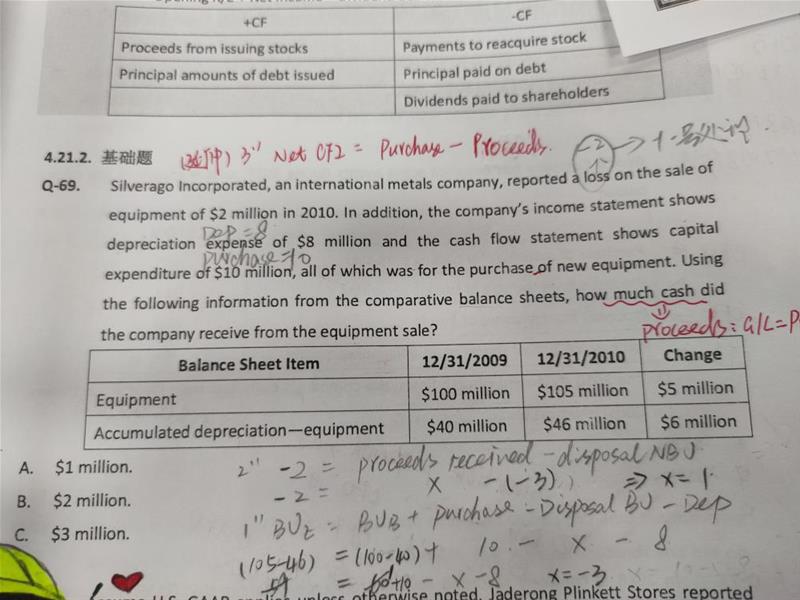 +CF -CF
Proceeds from issuing stocks Payments to reacquire stock
Principal amounts of debt issued Principal paid on debt
Dividends paid to shareholders
4.21.2. 基础题 3" Net CF2 = Purchase - Proceeds. -2
Q-69. Silverago Incorporated, an international metals company, reported a loss on the sale of
equipment of $2 million in 2010. In addition, the company's income statement shows
Dep = 8
depreciation expense of $8 million and the cash flow statement shows capital
purchase = 10
expenditure of $10 million, all of which was for the purchase of new equipment. Using
the following information from the comparative balance sheets, how much cash did
the company receive from the equipment sale?
proceeds: G/L = P
Balance Sheet Item 12/31/2009 12/31/2010 Change
Equipment $100 million $105 million $5 million
Accumulated depreciation—equipment $40 million $46 million $6 million
A. $1 million. 2" -2 = proceeds received - disposal NBV
B. $2 million. -2 = x - (-3) => x = 1
C. $3 million. 1" BVE = BVB + purchase - Disposal BV - Dep
(105-46) = (100-40) + 10 - x - 8
59 = 60+10 - x - 8 x = -3
unless otherwise noted, Jaderong Plinkett Stores reported